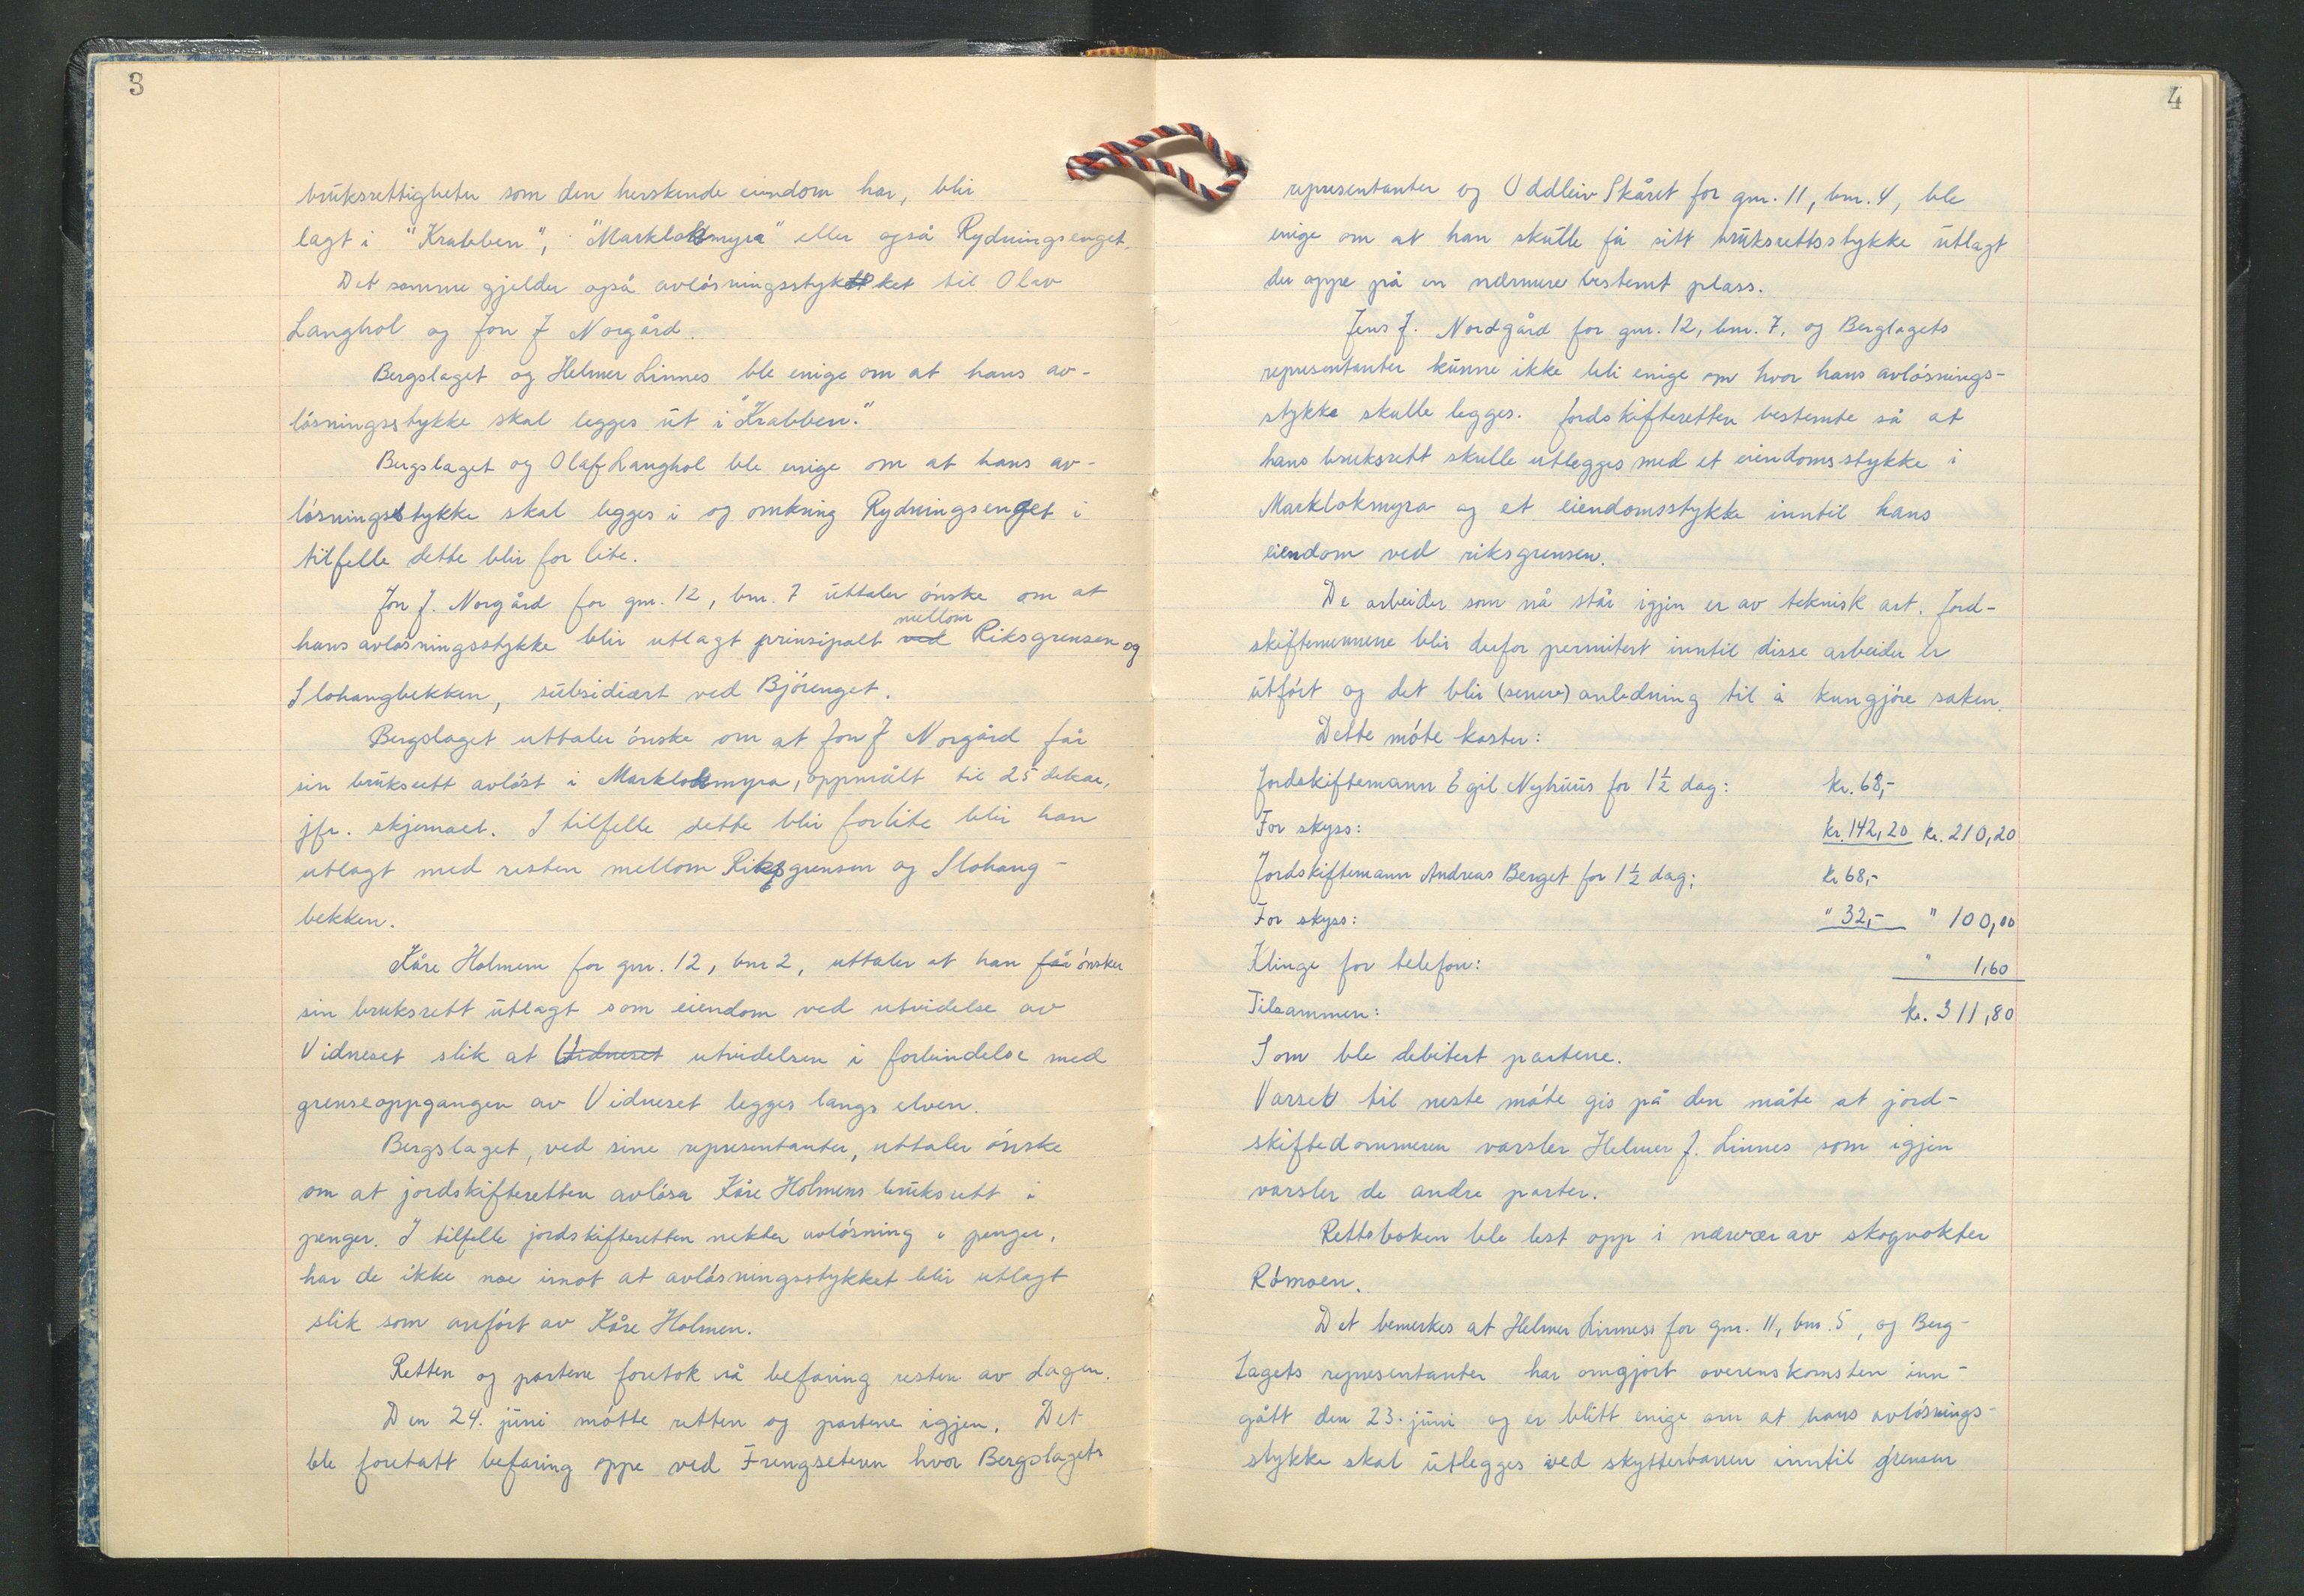 3
bruksrettigheter som den herskende eiendom har, blir
lagt i "Krabben", "Marklokmyra" eller også Rydningsenget.
Det samme gjelder også avløsningsstykket til Olav
Langhol og Jon J Norgård.
Bergslaget og Helmer Linnes ble enige om at hans av-
løsningsstykke skal legges ut i "Krabben."
Bergslaget og Olaf Langhol ble enige om at hans av-
løsningsstykke skal legges i og omkring Rydningsenget i
tilfelle dette blir for lite.
Jon J. Norgård for gnr. 12, bnr. 7 uttaler ønske om at
hans avløsningsstykke blir utlagt prinsipalt ved mellom Riksgrensen og
Slohangbekken, subsidiært ved Bjørenget.
Bergslaget uttaler ønske om at Jon J Norgård får
sin bruksrett avløst i Marklokmyra, oppmålt til 25 dekar,
jfr. skjemaet. I tilfelle dette blir forlite blir han
utlagt med resten mellom Riksgrensen og Slohang-
bekken.
Kåre Holmen for gnr. 12, bnr 2, uttaler at han får ønsker
sin bruksrett utlagt som eiendom ved utvidelse av
Vidneset slik at Vidneset utvidelsen i forbindelse med
grenseoppgangen av Vidneset legges langs elven.
Bergslaget, ved sine representanter, uttaler ønske
om at jordskifteretten avløser Kåre Holmens bruksrett i
penger. I tilfelle jordskifteretten nekter avløsning i penger,
har de ikke noe imot at avløsningsstykket blir utlagt
slik som anført av Kåre Holmen.
Retten og partene foretok så befaring resten av dagen.
Den 24. juni møtte retten og partene igjen. Det
ble foretatt befaring oppe ved Frengseteren hvor Bergslagets
4
representanter og Oddleiv Skåret for gnr. 11, bnr. 4, ble
enige om at han skulle få sitt bruksrettsstykke utlagt
der oppe på en nærmere bestemt plass.
Jens J. Nordgård for gnr. 12, bnr. 7, og Berglagets
representanter kunne ikke bli enige om hvor hans avløsnings-
stykke skulle legges. Jordskifteretten bestemte så at
hans bruksrett skulle utlegges med et eiendomsstykke i
Marklokmyra og et eiendomsstykke inntil hans
eiendom ved riksgrensen.
De arbeider som nå står igjen er av teknisk art. Jord-
skiftemennene blir derfor permitert inntil disse arbeider er
utført og det blir (senere) anledning til å kungjøre saken.
Dette møte koster:
Jordskiftemann Egil Nyhuus for 1½ dag: kr. 68,-
For skyss: kr. 142,20 kr. 210,20
Jordskiftemann Andreas Berget for 1½ dag: kr 68,-
For skyss: " 32,- " 100,00
Klinge for telefon: " 1,60
Tilsammen: kr. 311,80
Som ble debitert partene.
Varsel til neste møte gis på den måte at jord-
skiftedommeren varsler Helmer J. Linnes som igjen
varsler de andre parter.
Rettsboken ble lest opp i nærvær av skogvokter
Rømoen.
Det bemerkes at Helmer Linness for gnr. 11, bnr. 5, og Berg-
lagets representanter har omgjort overenskomsten inn-
gått den 23. juni og er blitt enige om at hans avløsnings-
stykke skal utlegges ved skytterbanen inntil grensen